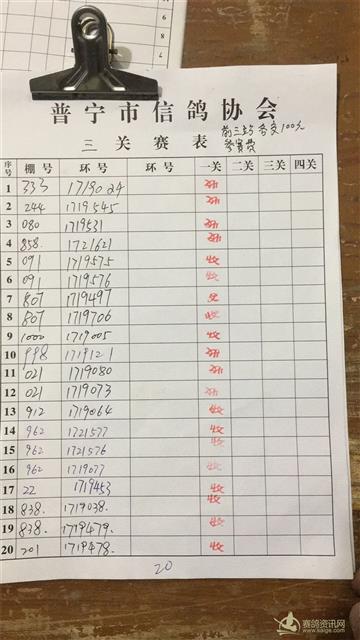 普宁市信鸽协会
前三关每关交100元
参赛费
三关赛表
序号 棚号 环号 环号 一关 二关 三关 四关
1 333 1719024
2 244 1719545
3 080 1719531
4 858. 1721621
5 091 1719575 收
6 091 1719576 收
7 807 1719497
8 807 1719706 收
9 1000 1719005 收
10 998 1719121
11 021 1719080
12 021 1719073
13 912 1719064 收
14 962 1721577 收
15 962 1721576 收
16 962 1719077 收
17 22 1719453 收
18 838. 1719038. 收
19 838. 1719479. 收
20 201 1719478. 收
20
赛鸽资讯网
www.saige.com